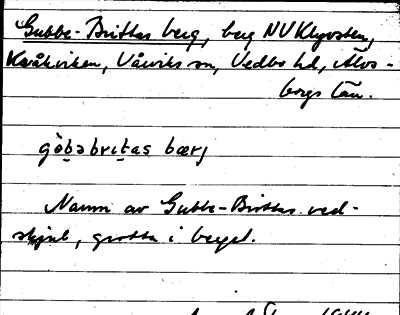 Gubbe-Brittas berg, berg NV Klyvsten,
Kråkviken, Vårviks sn, Vedbo hd, Älvs-
borgs län.
gòbəbrɩtas bærj
Namn av Gubbe-Brittas ved-
skjul, grotta i berget.